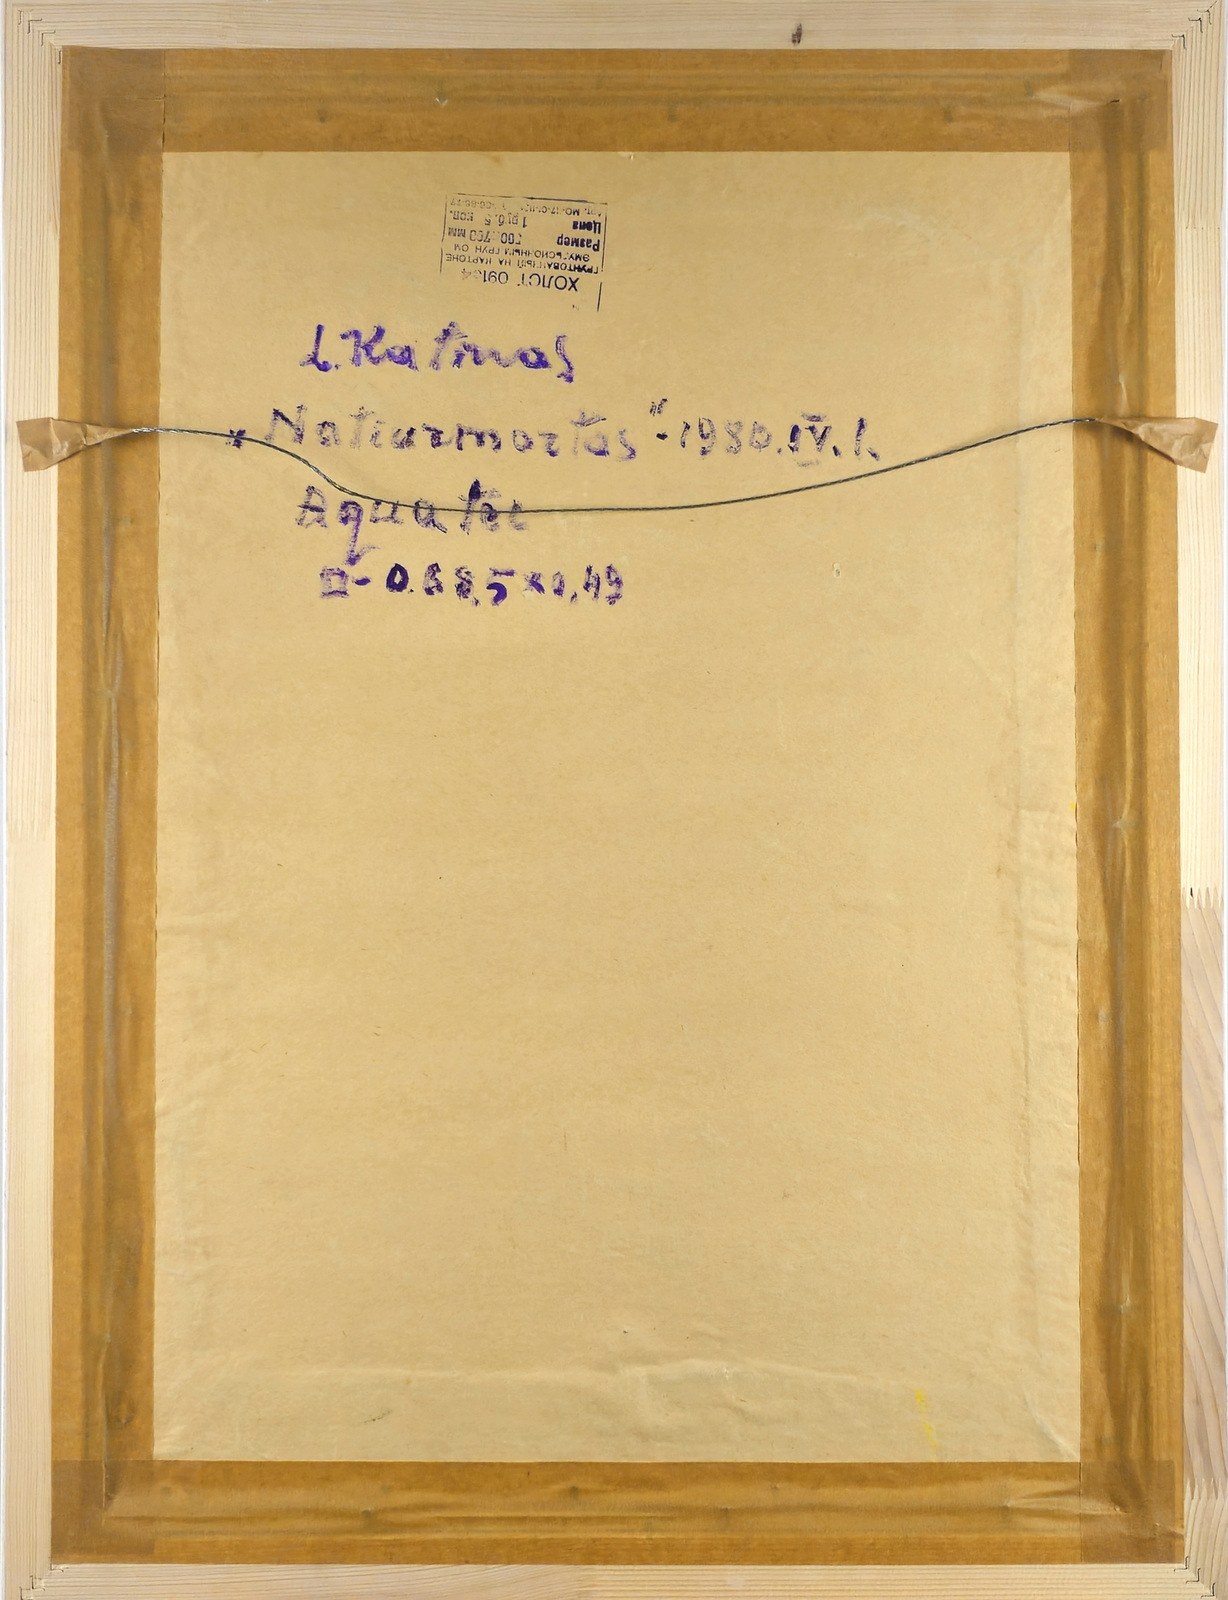 ХОЛСТ
ГРУНТОВАННЫЙ НА КАРТОНЕ
ЭМУЛЬСИОННЫМ ГРУНТОМ
Размер 500 700 мм
Цена 1 руб. 5 коп.
L. Katinas
„Natiurmortas" - 1980. IV. 1.
Aquatec
0.68,5 x 0,49